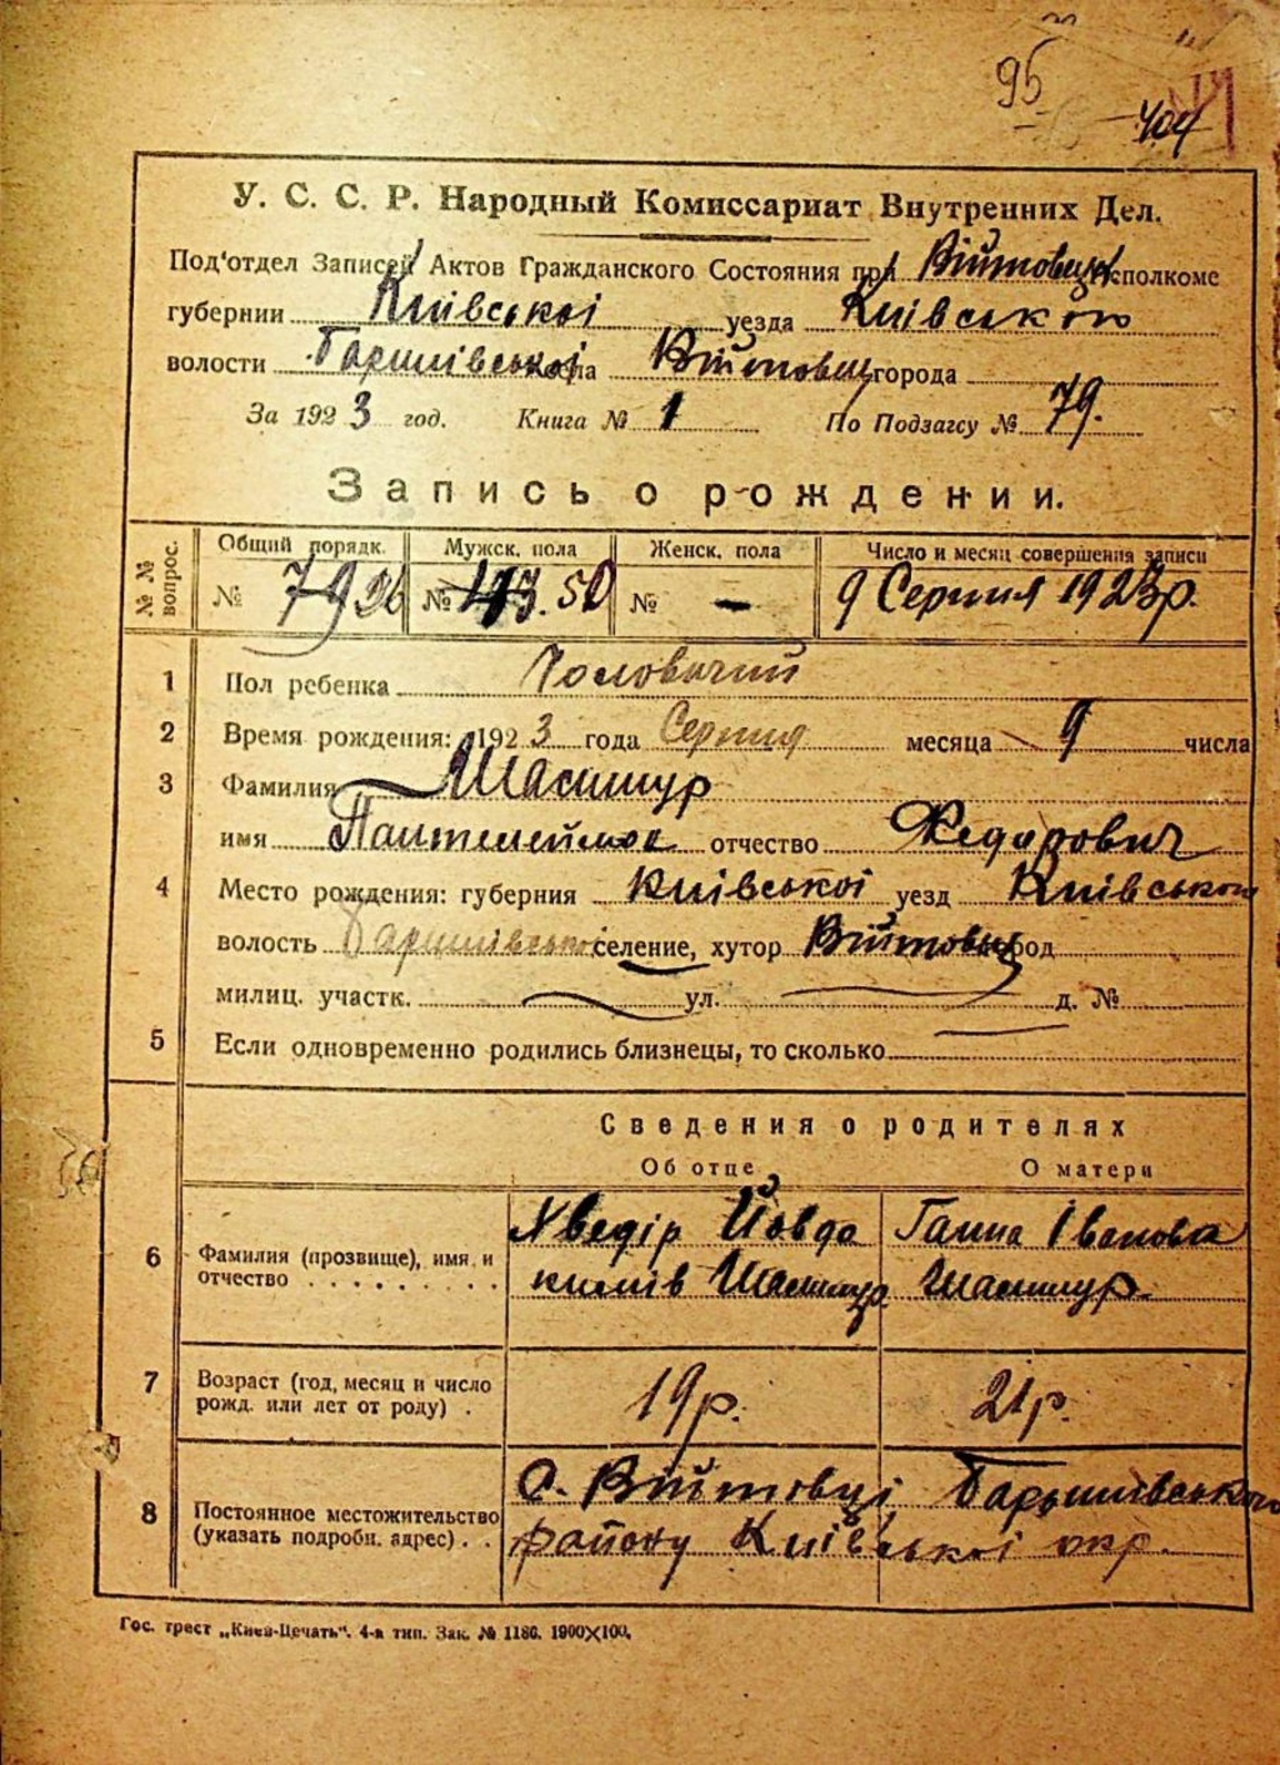 95
404
У. С. С. Р. Народный Комиссариат Внутренних Дел.
Под‘отдел Записей Актов Гражданского Состояния при Війтовец Исполкоме
губернии Київської уезда Київського
волости Баришівської села Війтовец города
За 1923 год. Книга № 1 По Подзагсу № 79.
Запись о рождении.
№ № вопрос.
Общий порядк. Мужск. пола Женск. пола Число и месяц совершения записи
№ 79 96 № 50 № — 9 Серпня 1923 р.
1 Пол ребенка Чоловичий
2 Время рождения: 1923 года Серпня месяца 9 числа
3 Фамилия
имя Пантелеймон отчество Федорович
4 Место рождения: губерния Київської уезд Київського
волость Баришівської селение, хутор Війтовец город
милиц. участк. ул. д. №
5 Если одновременно родились близнецы, то сколько
Сведения о родителях
Об отце О матери
6 Фамилия (прозвище), имя и отчество . . . . . . . . .
Хведір Йовдо
кимів
Ганна Іванова
7 Возраст (год, месяц и число рожд. или лет от роду) .
19 р. 21 р.
8 Постоянное местожительство (указать подробн. адрес) . .
С. Війтовці Баришівського
району Київської окр.
Гос. трест „Киев-Печать“. 4-я тип. Зак. № 1186. 1900×100.